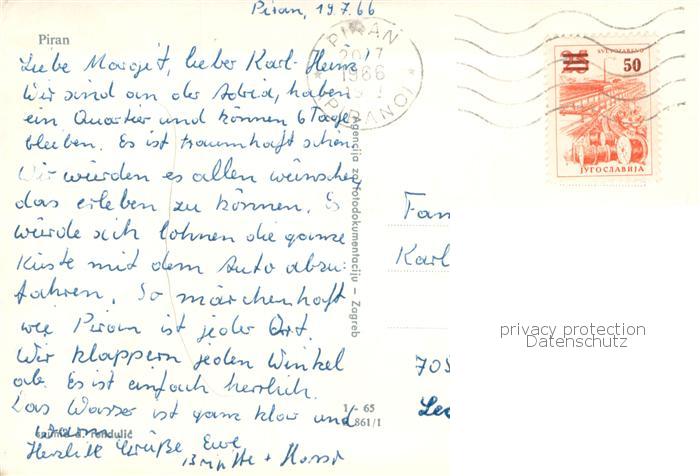 Piran, 19.7.66
Piran
Liebe Margit, lieber Karl-Heinz!
Wir sind an der Adria, haben
ein Quartier und können 6 Tage
bleiben. Es ist traumhaft schön.
Wir würden es allen wünschen
das erleben zu können. Es
würde sich lohnen die ganze
Küste mit dem Auto abzu-
fahren. So märchenhaft
wie Piran ist jeder Ort.
Wir klappern jeden Winkel
ab. Es ist einfach herrlich.
Das Wasser ist ganz klar und
warm.
Herzliche Grüße Eure
Brigitte +
snimio a. rendulić
Agencija za fotodokumentaciju - Zagreb
1 - 65
861/1
PIRAN
20.7
1966
PIRANO
25 50
ЈУГОСЛАВИЈА
Fam
Karl
705
Lei
privacy protection
Datenschutz